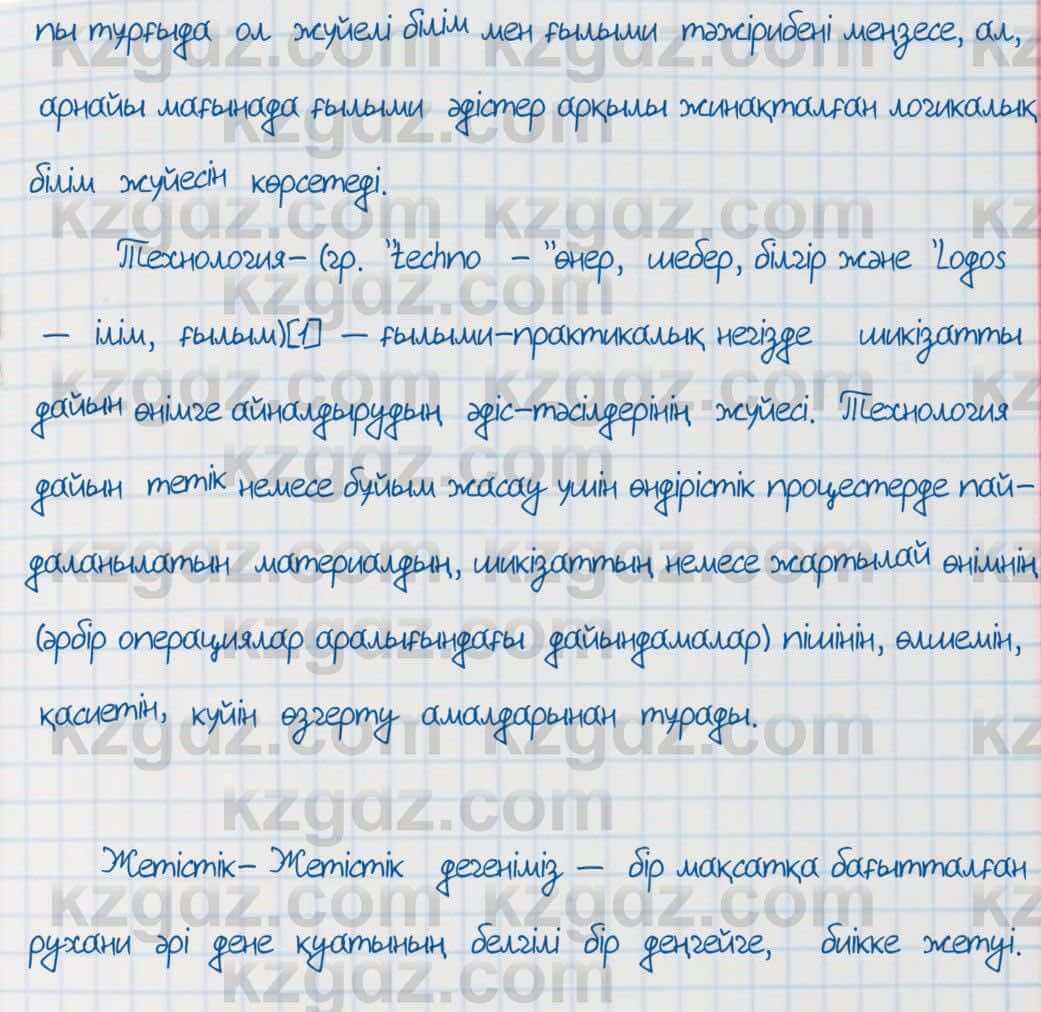 пы тұрғыда ол жүйелі білім мен ғылыми тәжірибені меңзесе, ал,
арнайы мағынада ғылыми әдістер арқылы жинақталған логикалық
білім жүйесін көрсетеді.
Технология- (гр. "techno - "өнер, шебер, білгір және "Logos
- ілім, ғылым)[1] - ғылыми-практикалық негізде шикізатты
дайын өнімге айналдырудың әдіс-тәсілдерінің жүйесі. Технология
дайын тетік немесе бұйым жасау үшін өндірістік процестерде пай-
даланылатын материалдын, шикізаттың немесе жартылай өнімнің
(әрбір операциялар аралығындағы дайындамалар) пішінін, өлшемін,
қасиетін, күйін өзгерту амалдарынан тұрады.
Жетістік- Жетістік дегеніміз - бір мақсатқа бағытталған
рухани әрі дене қуатының белгілі бір деңгейге, биікке жетуі.